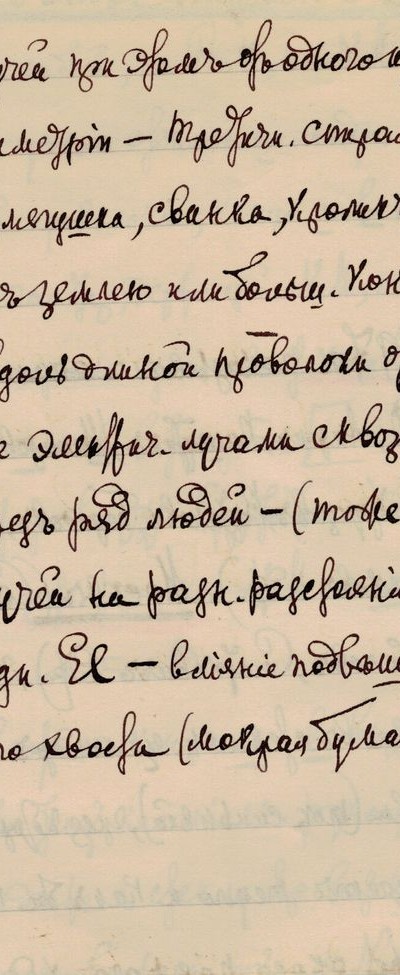 учей при этомъ отъ одного и
метрiи — Третичн. стра
лягушка, свинка, кролик
ъ землею или больш. кон
вдоль длиной проволоки
электрич. лучами сквоз
редъ ряд людей — (тоже
учей на разн. разстоянiи
дн. El — влiянiе подвѣш
го хвоста (мокрая бума